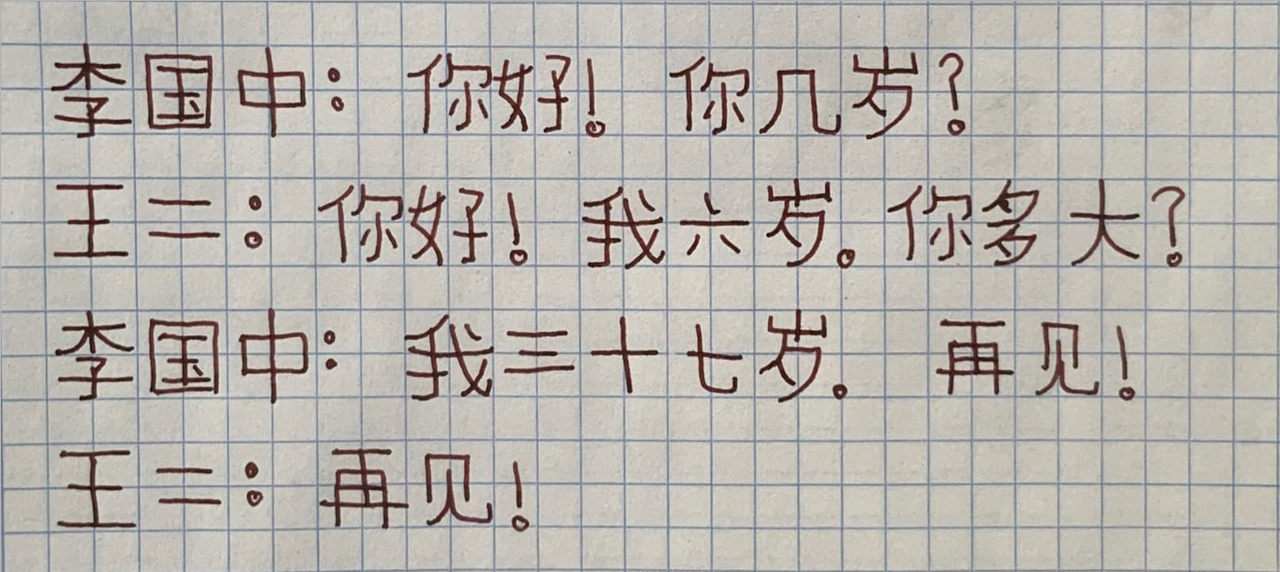 李国中：你好！ 你几岁？
王二：你好！ 我六岁。你多大？
李国中：我三十七岁。 再见！
王二：再见！